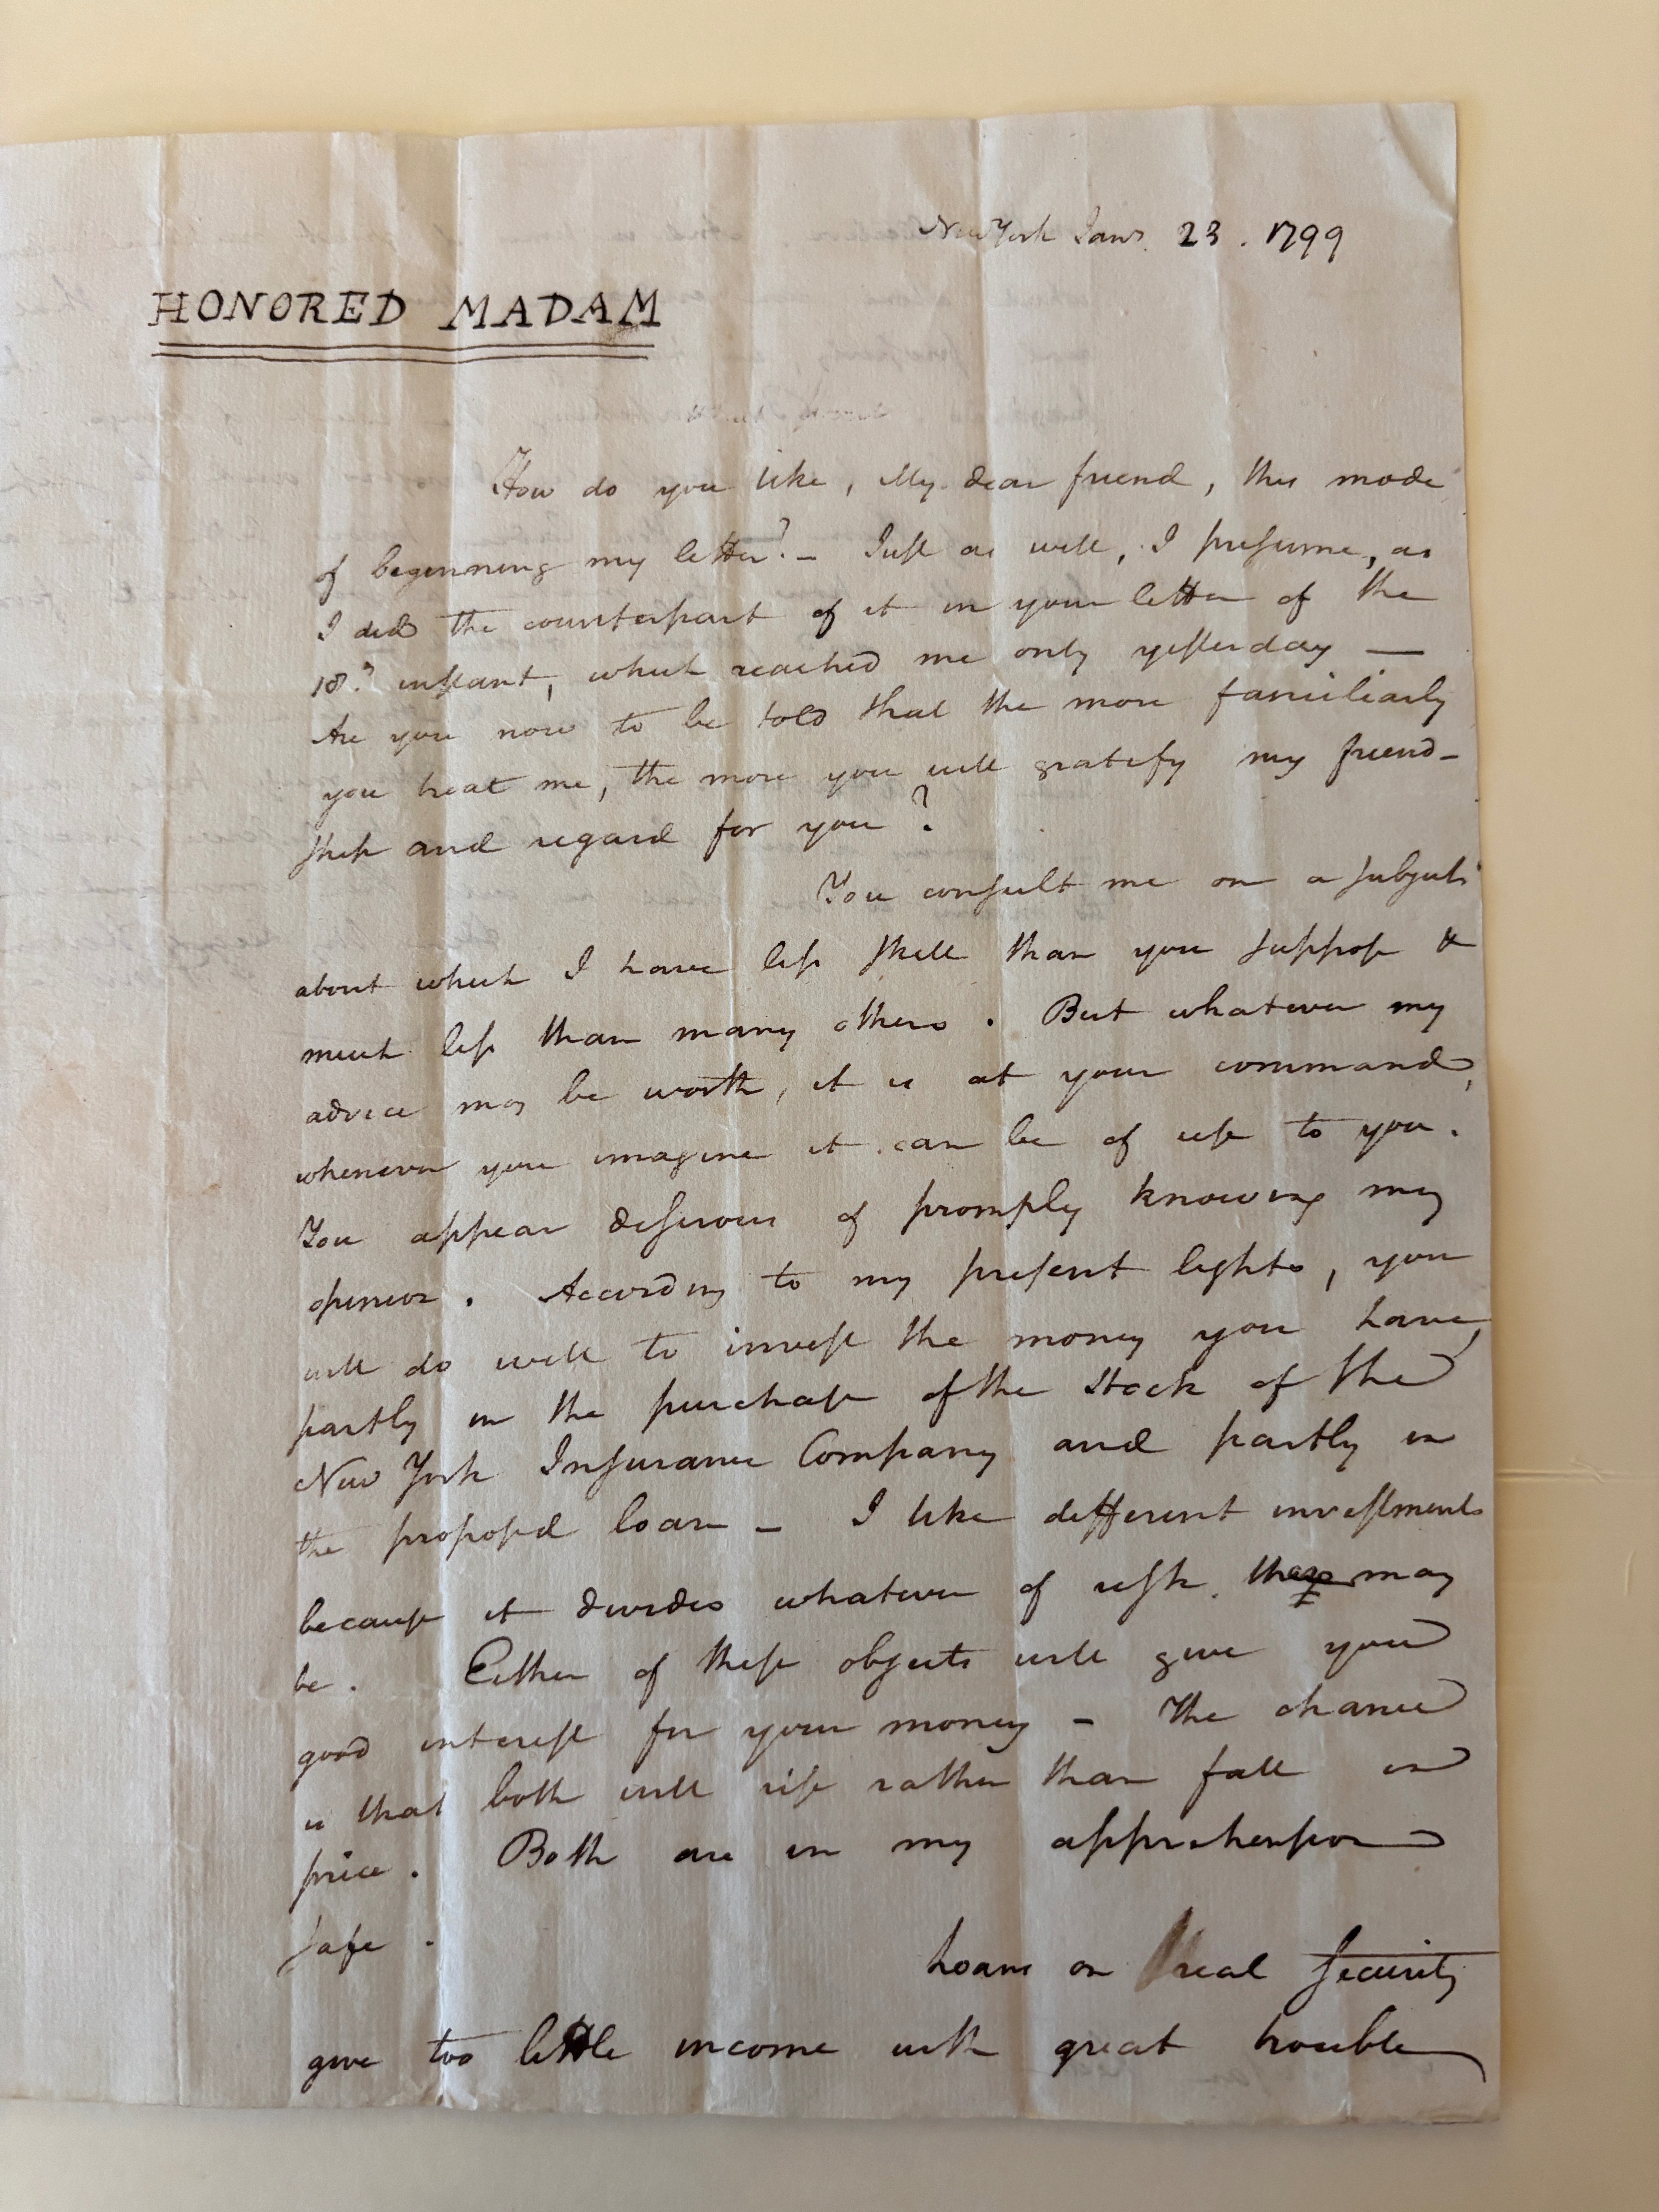 New York Jany. 23. 1799
HONORED MADAM
How do you like, My dear friend, this mode
of beginning my letter? – Just as well, I presume, as
I did the counterpart of it in your letter of the
18th instant, which reached me only yesterday —
Are you now to be told that the more familiarly
you treat me, the more you will gratify my friend-
ship and regard for you?
You consult me on a subject
about which I have less skill than you suppose &
much less than many others. But whatever my
advice may be worth, it is at your command,
whenever you imagine it can be of use to you.
You appear desirous of promply knowing my
opinion. According to my present lights, you
will do well to invest the money you have,
partly in the purchase of the Stock of the
New York Insurance Company and partly in
the proposed loan – I like different investments
because it divides whatever of risk may
be. Either of these objects will give you
good interest for your money – The chance
is that both will rise rather than fall in
price. Both are in my apprehension
safe.
Loans on real security
give too little income with great trouble